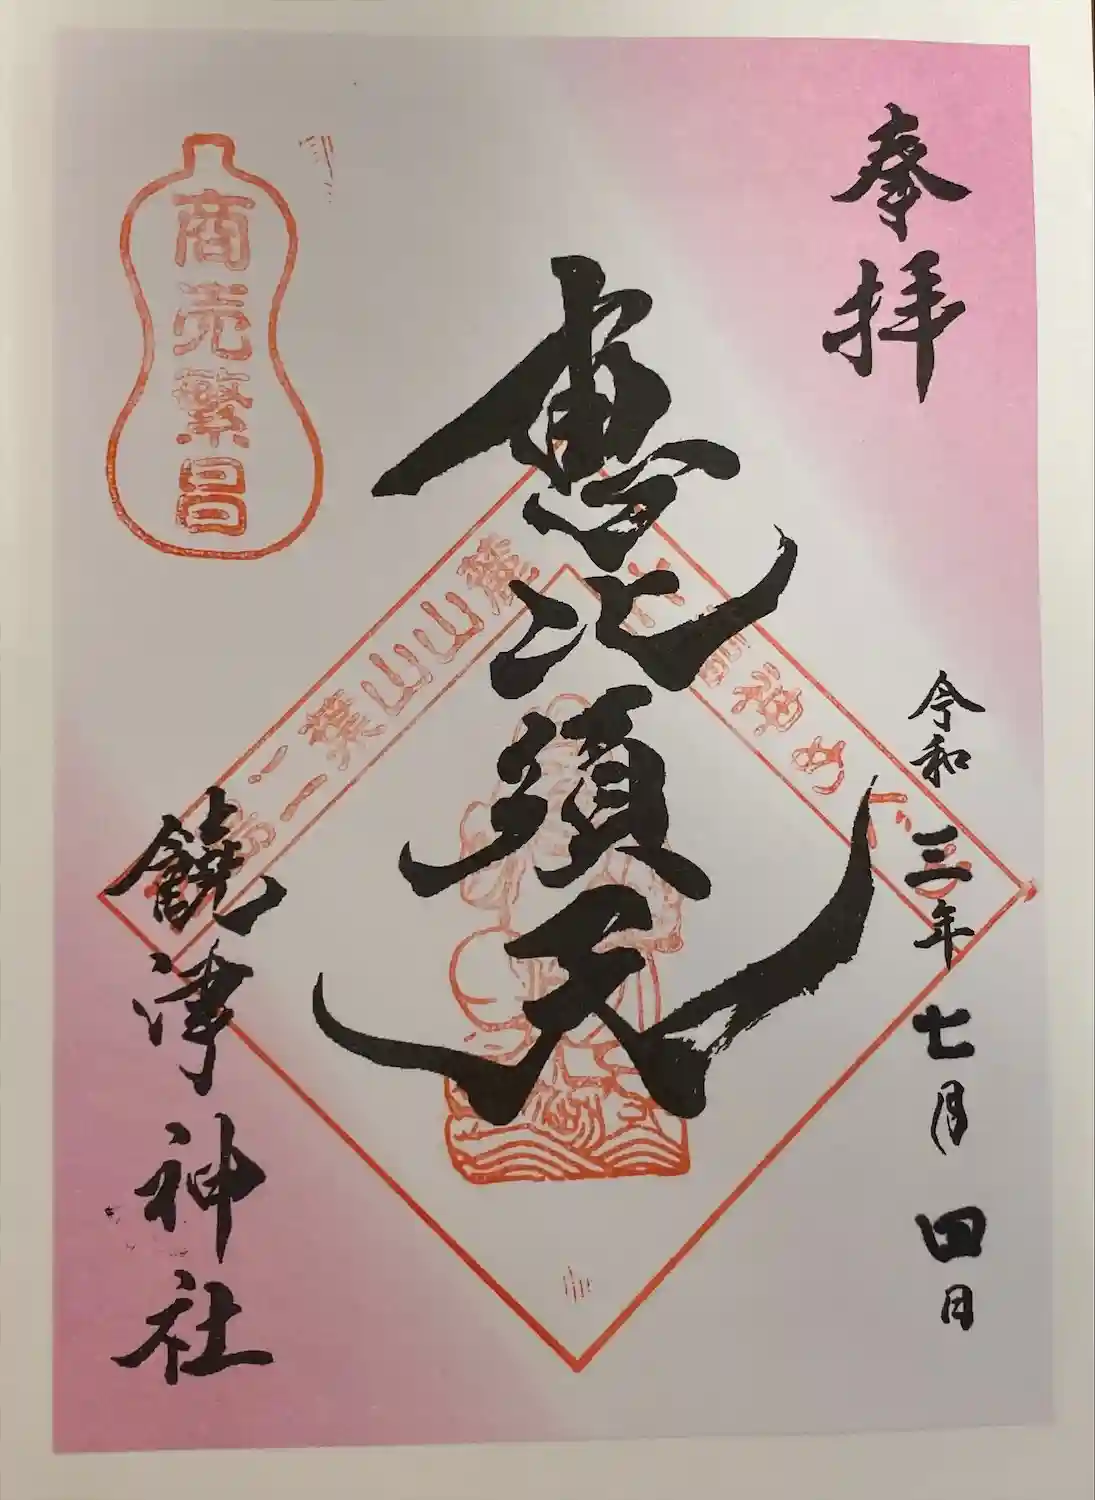 奉拝
令和三年七月四日
恵比須天
二葉山山麓
七福神めぐり
商売繁昌
饒津神社